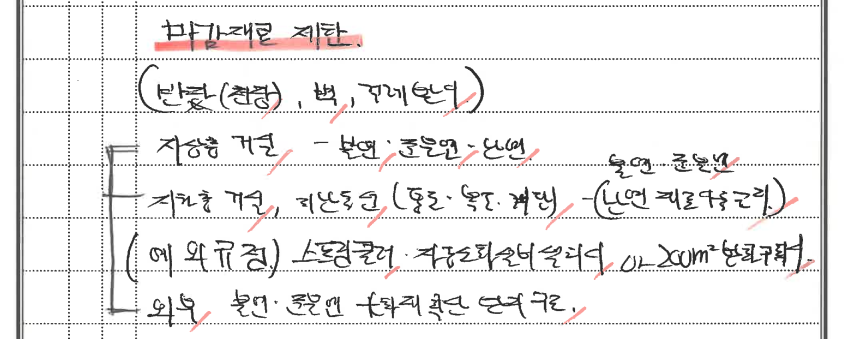 마감재료 제한.
(반자(천장), 벽, 구레
지상층 거실 - 불연·준불연·난연.
불연·준불연
지하층 거실, 피난동선 (통로·복도·계단) - (난연 재료 구리.)
(예외규정) 스프링클러·자동소화설비 설치시 or 200m² 방화구획시.
외부 불연·준불연 + 화재확산 방지구조.